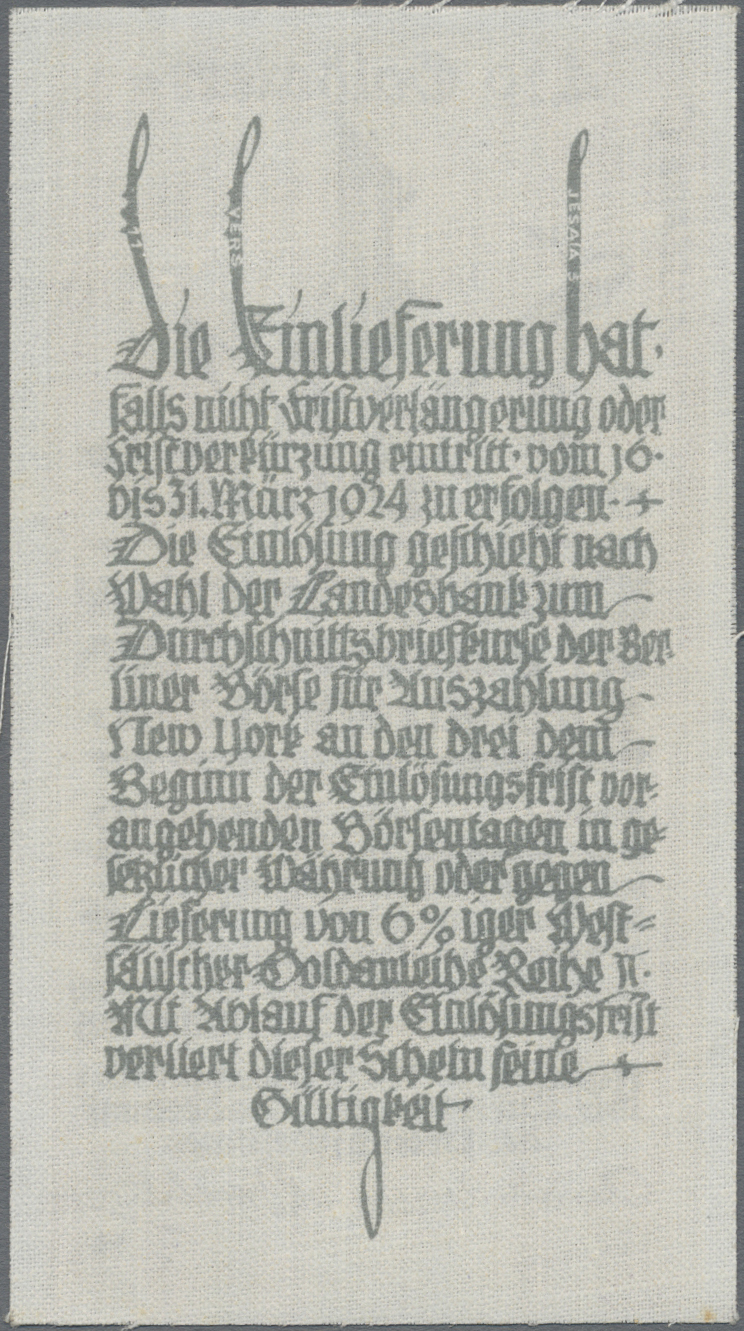 JESAIA 5
VERS
11
Die Einlieferung hat·
falls nicht Fristverlängerung oder
Fristverkürzung eintritt· vom 16·
bis 31. März 1924 zu erfolgen·
Die Einlösung geschieht nach
Wahl der Landesbank zum
Durchschnittsbriefkurse der Ber-
liner Börse für Auszahlung
New York an den drei dem
Beginn der Einlösungsfrist vor-
angehenden Börsentagen in ge-
setzlicher Währung oder gegen
Lieferung von 6%iger West-
fälischer Goldanleihe Reihe II.
Mit Ablauf der Einlösungsfrist
verliert dieser Schein seine
Gültigkeit